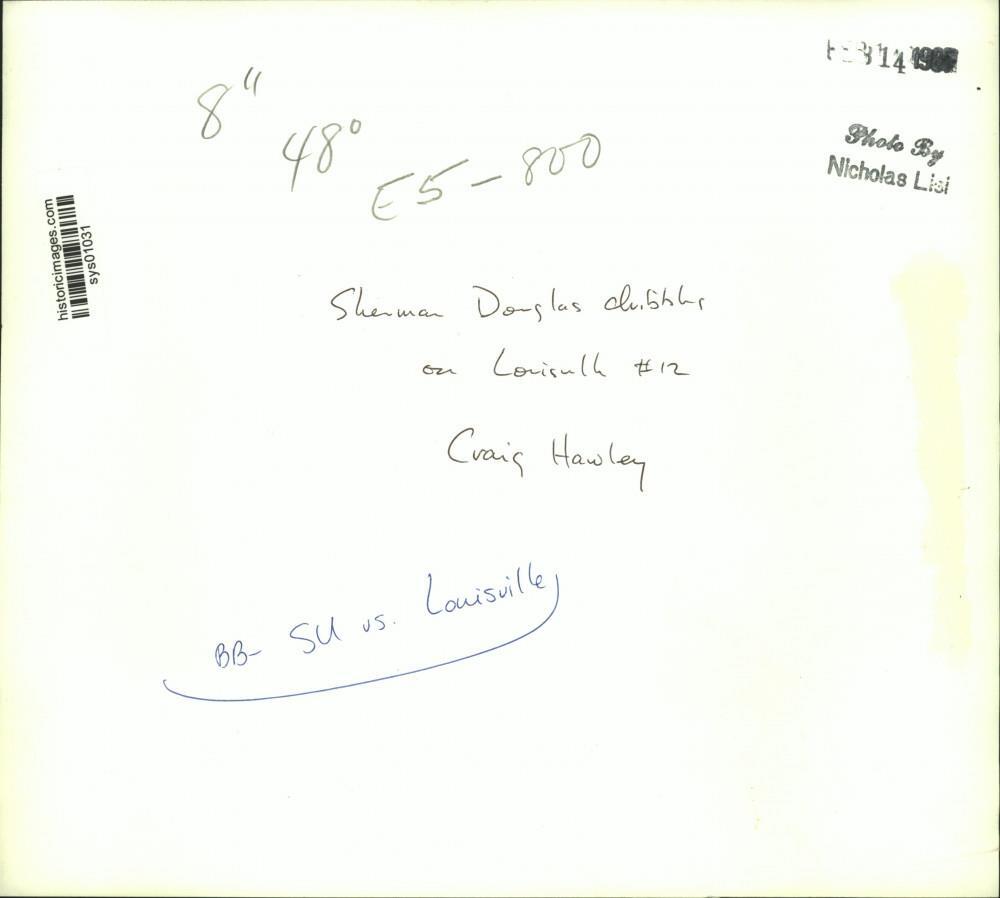 FEB 14 1987
8"
48°
E5-800
Photo By
Nicholas Lisi
historicimages.com
sys01031
Sherman Douglas dribbling
on Louisville #12
Craig Hawley
BB- SU vs. Louisville